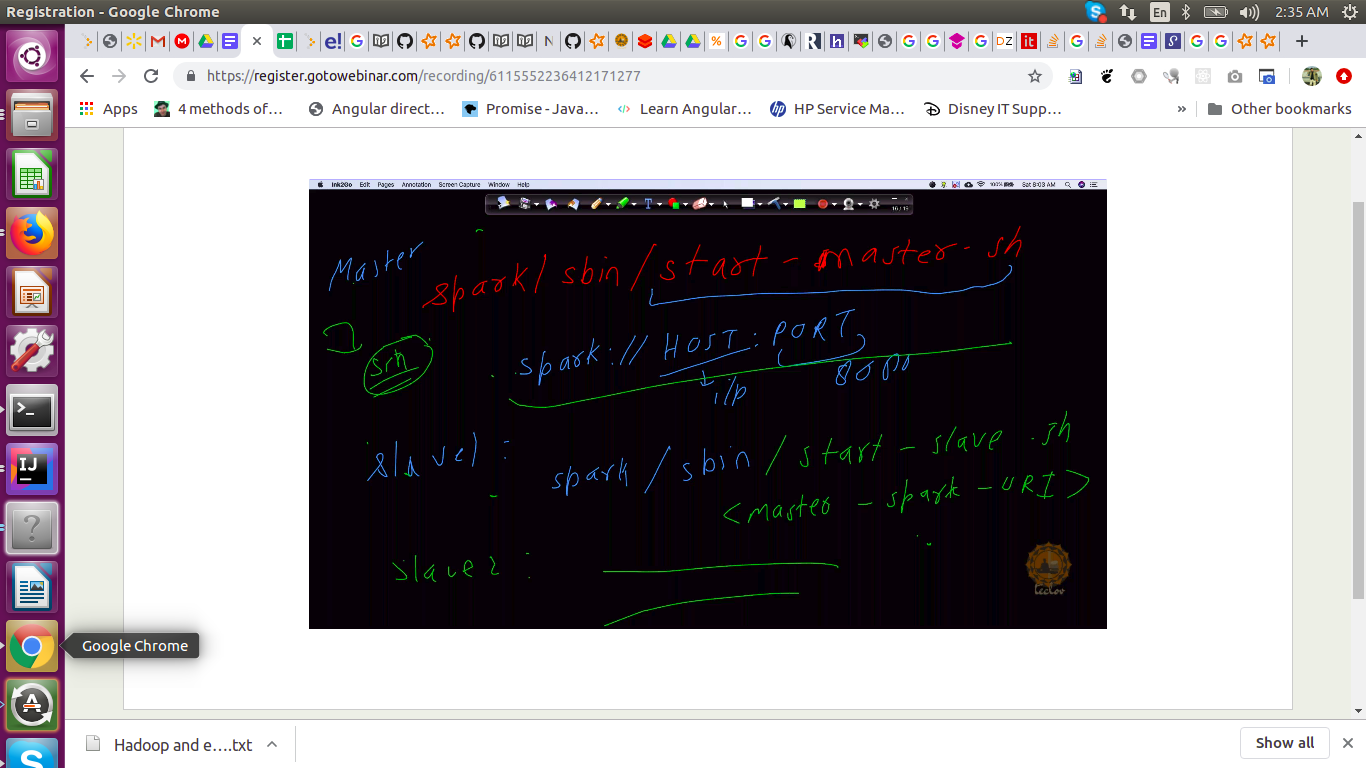 Registration - Google Chrome
En
2:35 AM
https://register.gotowebinar.com/recording/6115552236412171277
Apps
4 methods of...
Angular direct...
Promise - Java...
Learn Angular...
HP Service Ma...
Disney IT Supp...
»
Other bookmarks
Ink2Go Edit Pages Annotation Screen Capture Window Help
100%
Sat 8:03 AM
Master
spark/sbin/start-master.sh
spark://HOST:PORT
i/p
slave1:
spark/sbin/start-slave.sh
<master-spark-URI>
slave2:
Google Chrome
Hadoop and e....txt
Show all